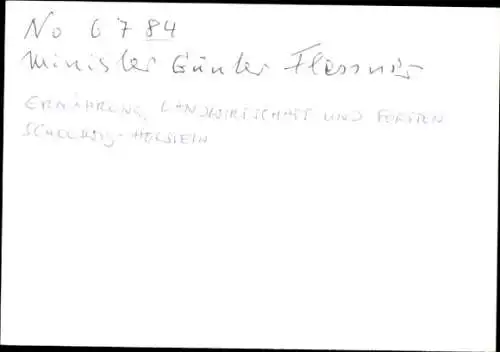 No 6784
Minister Günter Flessner
ERNÄHRUNG, LANDWIRTSCHAFT UND FORSTEN
SCHLESWIG-HOLSTEIN